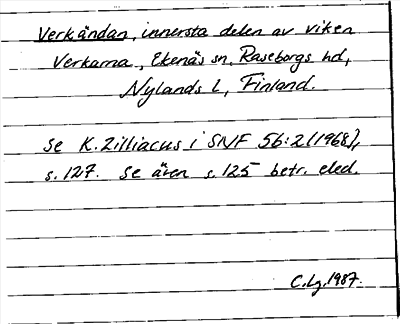 Verkändan, innersta delen av viken
Verkarna, Ekenäs sn, Raseborgs hd,
Nylands l, Finland.
Se K. Zilliacus i SNF 56:2 (1968),
s. 127. Se även s. 125 betr. eled.
C. Lg. 1987.